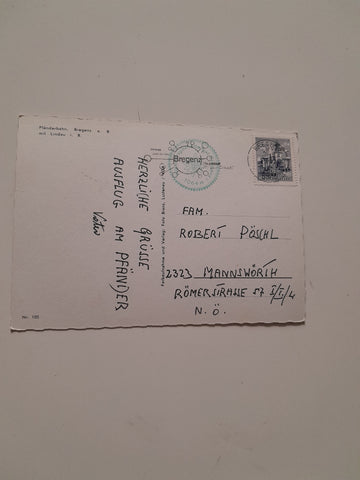 Pfänderbahn, Bregenz a. B.
mit Lindau i. B.
Bregenz
HERZLICHE GRÜSSE
AUSFLUG AM PFÄNDER
FAM.
ROBERT PÖSCHL
2323 MANNSWÖRTH
RÖMERSTRASSE 57 3/I/4
N. Ö.
Nr. 105